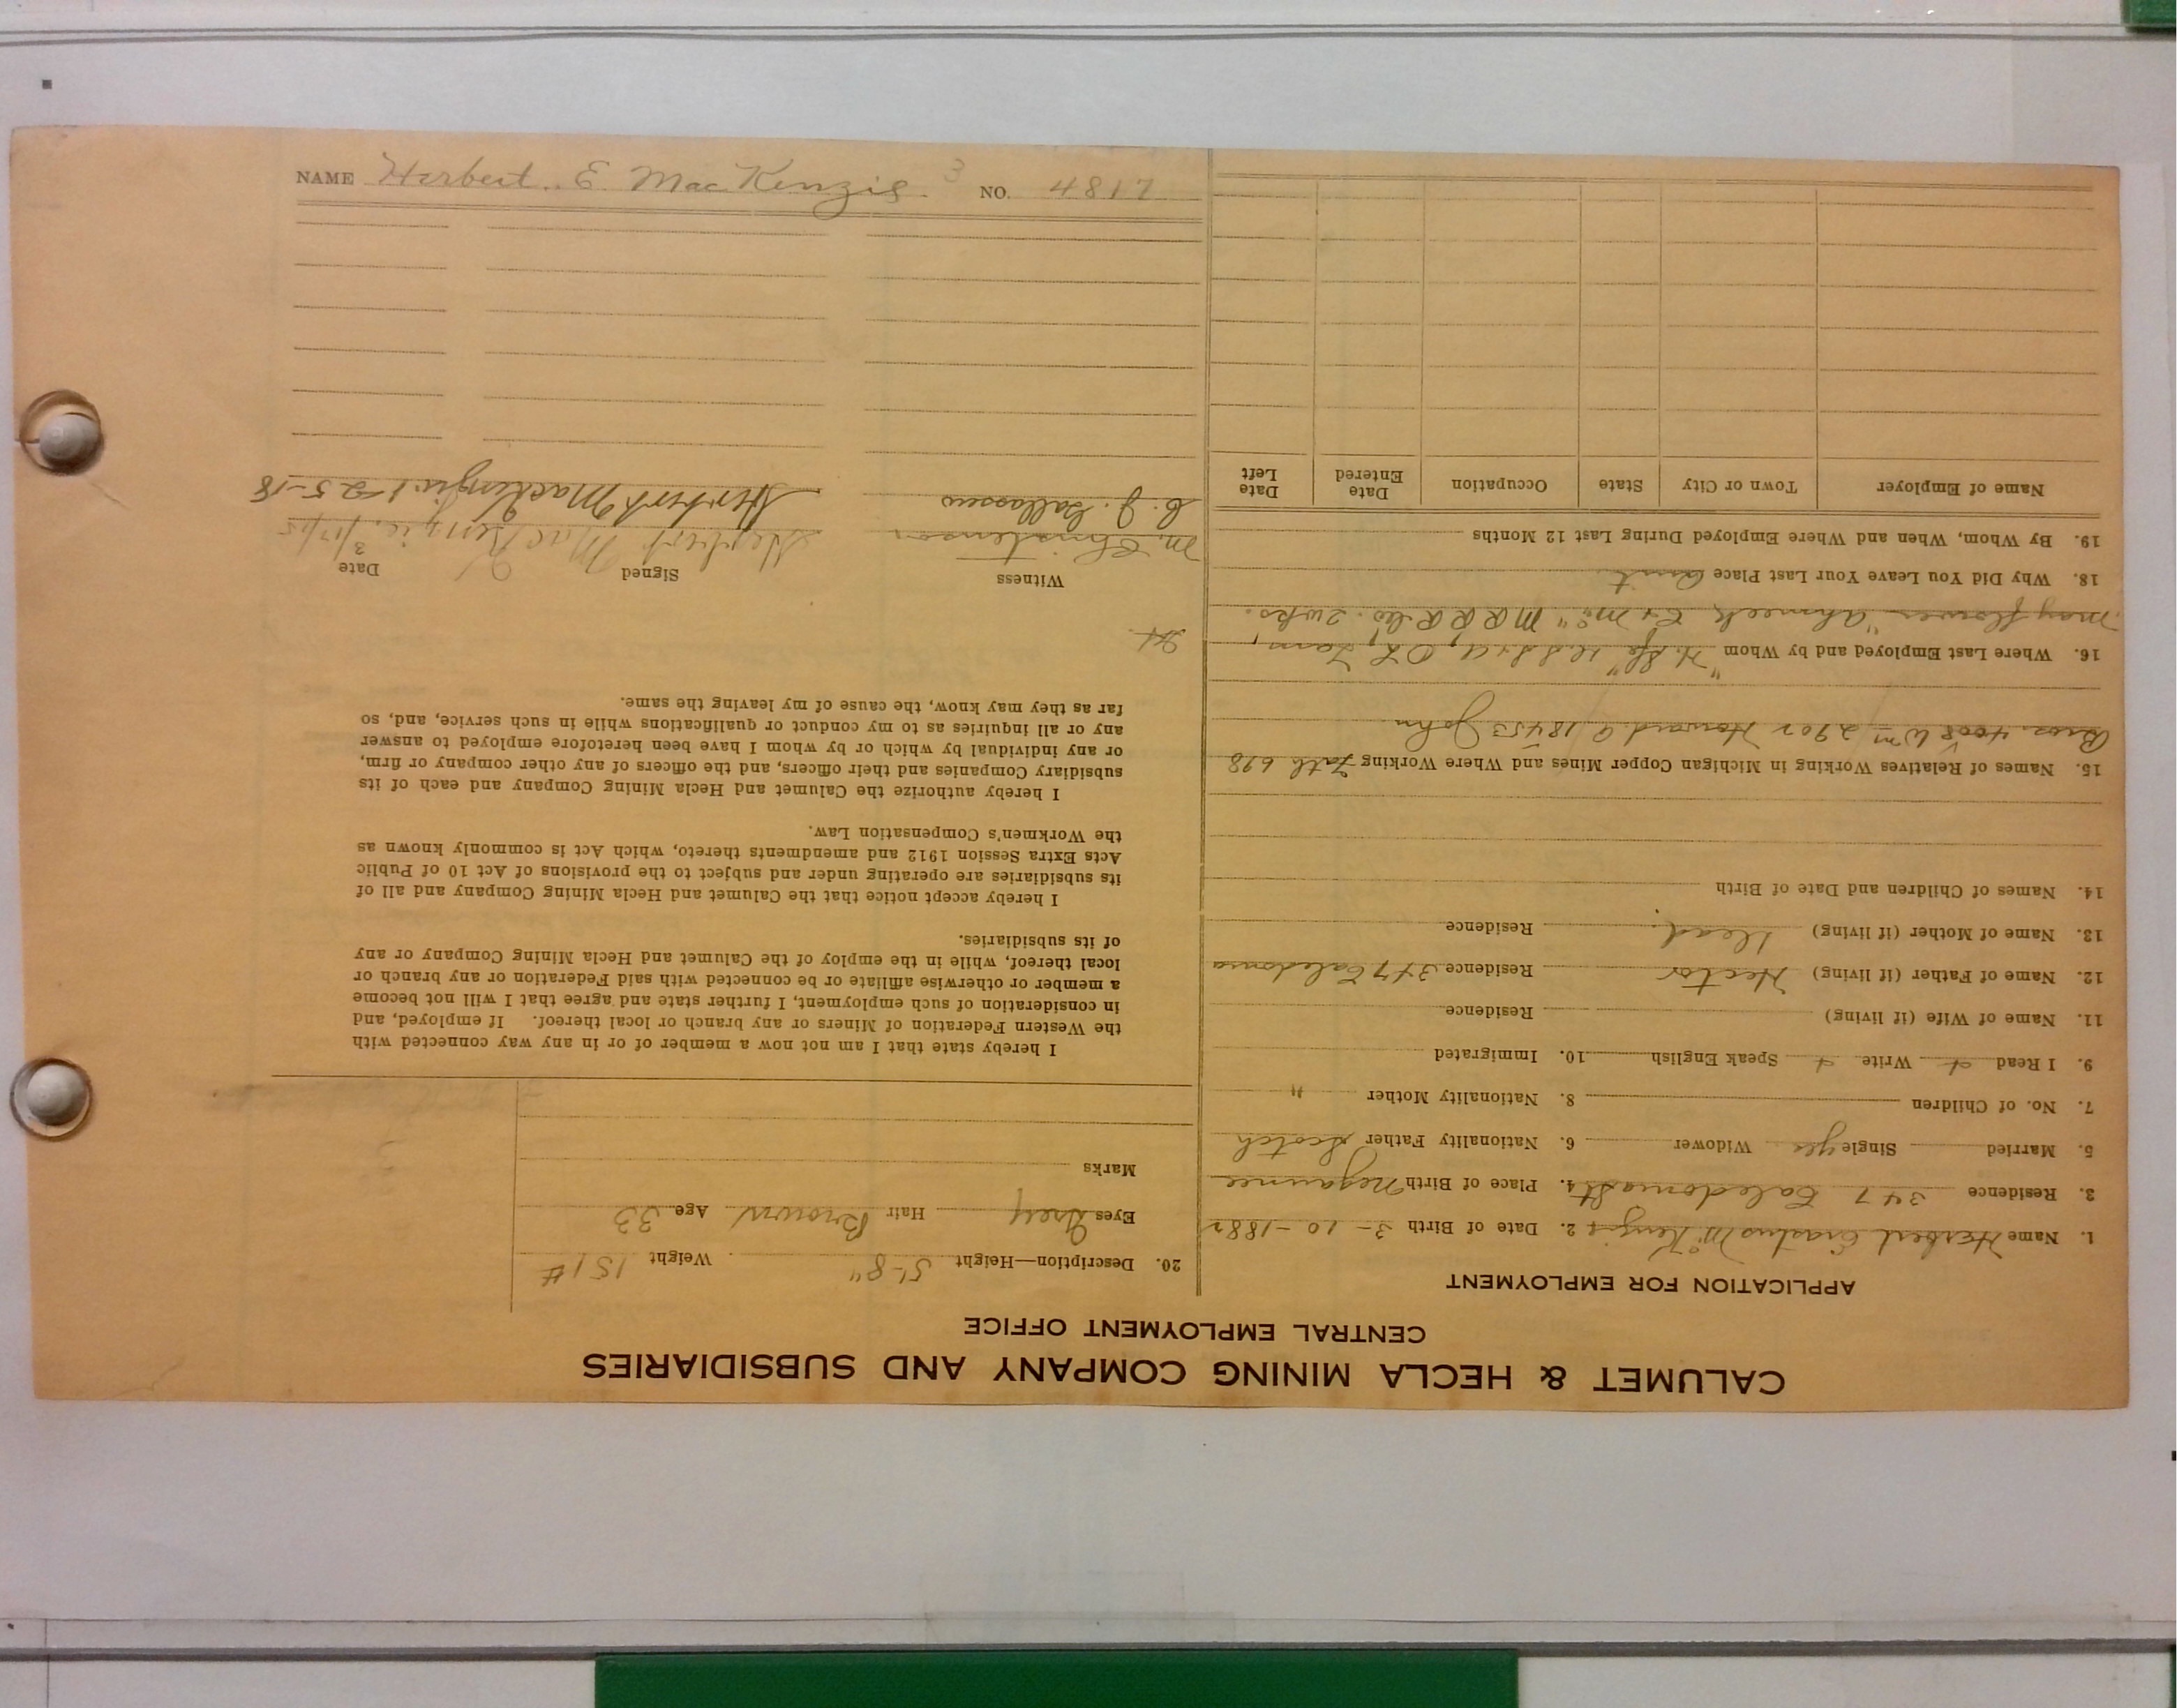 NAME Herbert E. MacKenzie 3 NO. 4817
CALUMET & HECLA MINING COMPANY AND SUBSIDIARIES
CENTRAL EMPLOYMENT OFFICE
APPLICATION FOR EMPLOYMENT
1. Name Herbert Erastus McKenzie 2. Date of Birth 3-10-1882
3. Residence 347 Caledonia St 4. Place of Birth Negaunee
5. Married Single yes Widower 6. Nationality Father Scotch
7. No. of Children 8. Nationality Mother "
9. I Read + Write + Speak English 10. Immigrated
11. Name of Wife (if living) Residence
12. Name of Father (if living) Hector Residence 347 Caledonia
13. Name of Mother (if living) Dead. Residence
14. Names of Children and Date of Birth
15. Names of Relatives Working in Michigan Copper Mines and Where Working Fath 698
Bros. 4008 Wm 2902 Howard A 18453 John
16. Where Last Employed and by Whom
May flower "Ahmeek, 2 wks.
18. Why Did You Leave Your Last Place
19. By Whom, When and Where Employed During Last 12 Months
Name of Employer Town or City State Occupation Date Entered Date Left
20. Description—Height 5'-8" Weight 151#
Eyes Grey Hair Brown Age 33
Marks
I hereby state that I am not now a member of or in any way connected with
the Western Federation of Miners or any branch or local thereof. If employed, and
in consideration of such employment, I further state and agree that I will not become
a member or otherwise affiliate or be connected with said Federation or any branch or
local thereof, while in the employ of the Calumet and Hecla Mining Company or any
of its subsidiaries.
I hereby accept notice that the Calumet and Hecla Mining Company and all of
its subsidiaries are operating under and subject to the provisions of Act 10 of Public
Acts Extra Session 1912 and amendments thereto, which Act is commonly known as
the Workmen's Compensation Law.
I hereby authorize the Calumet and Hecla Mining Company and each of its
subsidiary Companies and their officers, and the officers of any other company or firm,
or any individual by which or by whom I have been heretofore employed to answer
any or all inquiries as to my conduct or qualifications while in such service, and, so
far as they may know, the cause of my leaving the same.
Witness Signed Date
M. Christenson Herbert MacKenzie, 3/17/15
Herbert MacKenzie 1-25-18